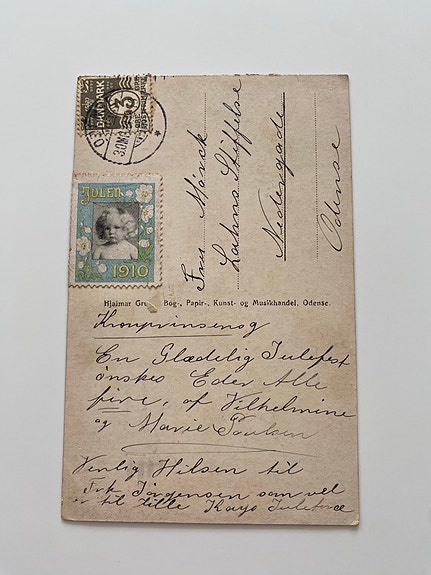 DANMARK
3
JULEN
1910
Fru Mörck
Lahns Stiftelse
Nedergade
Odense
Hjalmar Bog-, Papir-, Kunst- og Musikhandel, Odense.
En Glædelig Julefest
ønskes Eder Alle
fire, af Vilhelmine
og Marie Poulsen
Venlig Hilsen til
Frk Jørgensen som vel
er til lille Kays